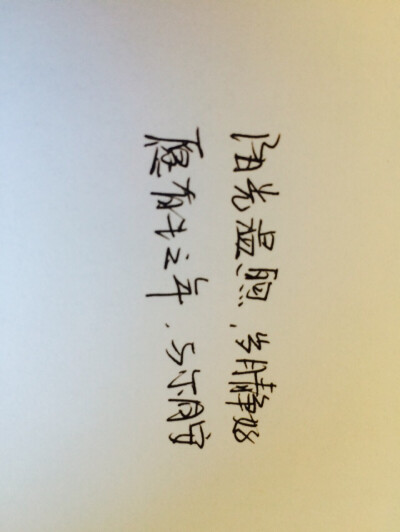 阳光温煦、岁月静好
愿有生之年、与尔同守